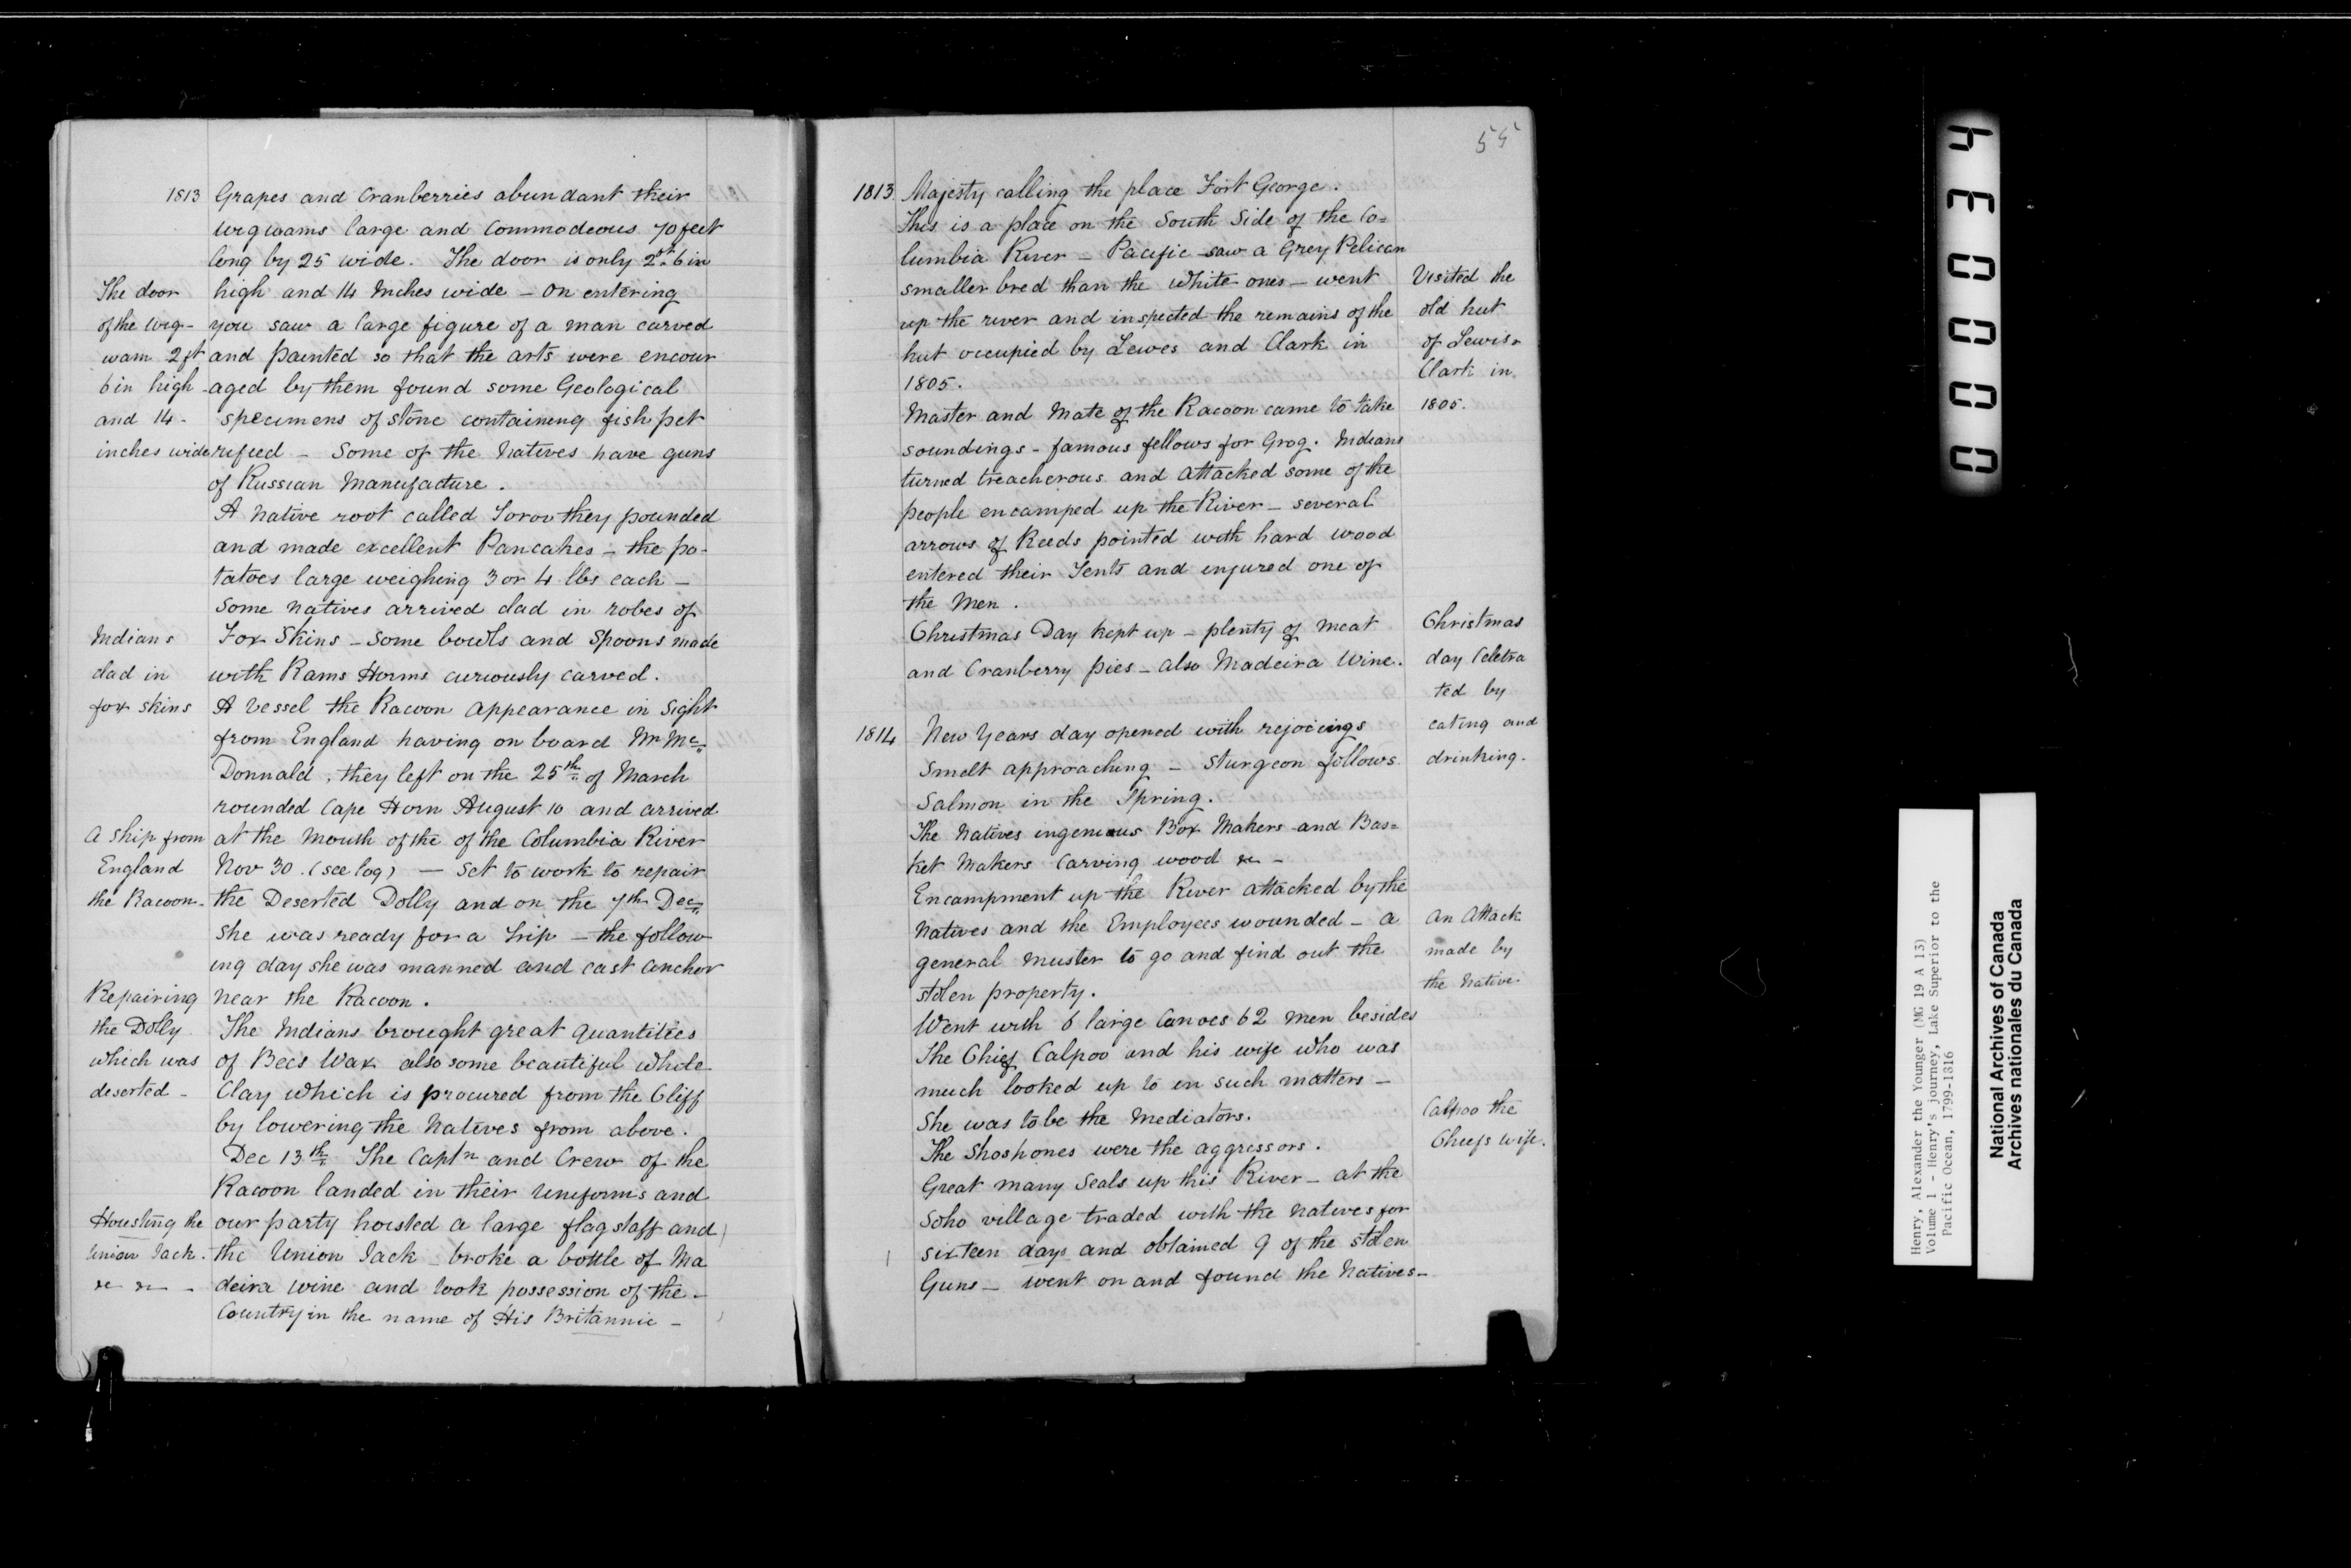 1813 Grapes and Cranberries abundant their
wigwams large and Commodeous 70 feet
long by 25 wide. The door is only 2ft 6 in
The door high and 14 Inches wide – On entering
of the wig- you saw a large figure of a man carved
wam 2 ft and painted so that the arts were encour
6 in high -aged by them found some Geological
and 14 - specimens of stone containing fish pet
inches wide rified – Some of the Natives have guns
of Russian Manufacture.
A native root called they pounded
and made excellent Pancakes – the po-
tatoes large weighing 3 or 4 lbs each –
Some natives arrived clad in robes of
Indians Fox Skins – Some bowls and Spoons made
clad in with Rams Horns curiously carved.
fox skins A vessel the Racoon appearance in sight
from England having on board Mr Mc
Donnald, they left on the 25th of March
rounded Cape Horn August 10 and arrived
A Ship from at the Mouth of the of the Columbia River
England Nov 30. (see log) — Set to work to repair
the Racoon- the Deserted Dolly and on the 7th Dec
She was ready for a trip – the follow
ing day she was manned and cast anchor
Repairing near the Racoon.
the Dolly The Indians brought great quantities
which was of Bees Wax also some beautiful White
deserted - Clay which is procured from the Cliff
by lowering the Natives from above.
Dec 13th The Captn and Crew of the
Racoon landed in their Uniforms and
Housting the our party hoisted a large flagstaff and
Union Jack. the Union Jack – broke a bottle of Ma
&c &c - deira wine and took possession of the –
Country in the name of His Britannic –
55
1813 Majesty calling the place Fort George.
This is a place on the South Side of the Co=
lumbia River – Pacific – saw a Grey Pelican
smaller bred than the White ones – went Visited the
up the river and inspected the remains of the old hut
hut occupied by Lewes and Clark in of Lewis &
1805. Clark in
Master and Mate of the Racoon came to take 1805.
soundings – famous fellows for Grog. Indians
turned treacherous and attacked some of the
people encamped up the River – several
arrows of Reeds pointed with hard wood
entered their Tents and injured one of
the Men.
Christmas Day kept up – plenty of meat Christmas
and Cranberry pies – also Madeira Wine. day Celebra
ted by
1814 New Years day opened with rejoicings eating and
Smelt approaching – Sturgeon follows drinking.
Salmon in the Spring.
The Natives ingenious Box Makers and Bas=
ket Makers Carving wood &c –
Encampment up the River attacked by the
Natives and the Employees wounded – a An Attack
general muster to go and find out the made by
stolen property. the Native
Went with 6 large Canoes 62 men besides
The Chief Calpoo and his wife who was
much looked up to in such matters –
She was to be the Mediators. Calpoo the
The Shoshones were the aggressors. Chiefs wife.
Great many Seals up this River – at the
Soho village traded with the Natives for
sixteen days and obtained 9 of the stolen
Guns – went on and found the Natives –
000034
Henry, Alexander the Younger (MG 19 A 13)
Volume 1 - Henry's journey, Lake Superior to the
Pacific Ocean, 1799-1816
National Archives of Canada
Archives nationales du Canada